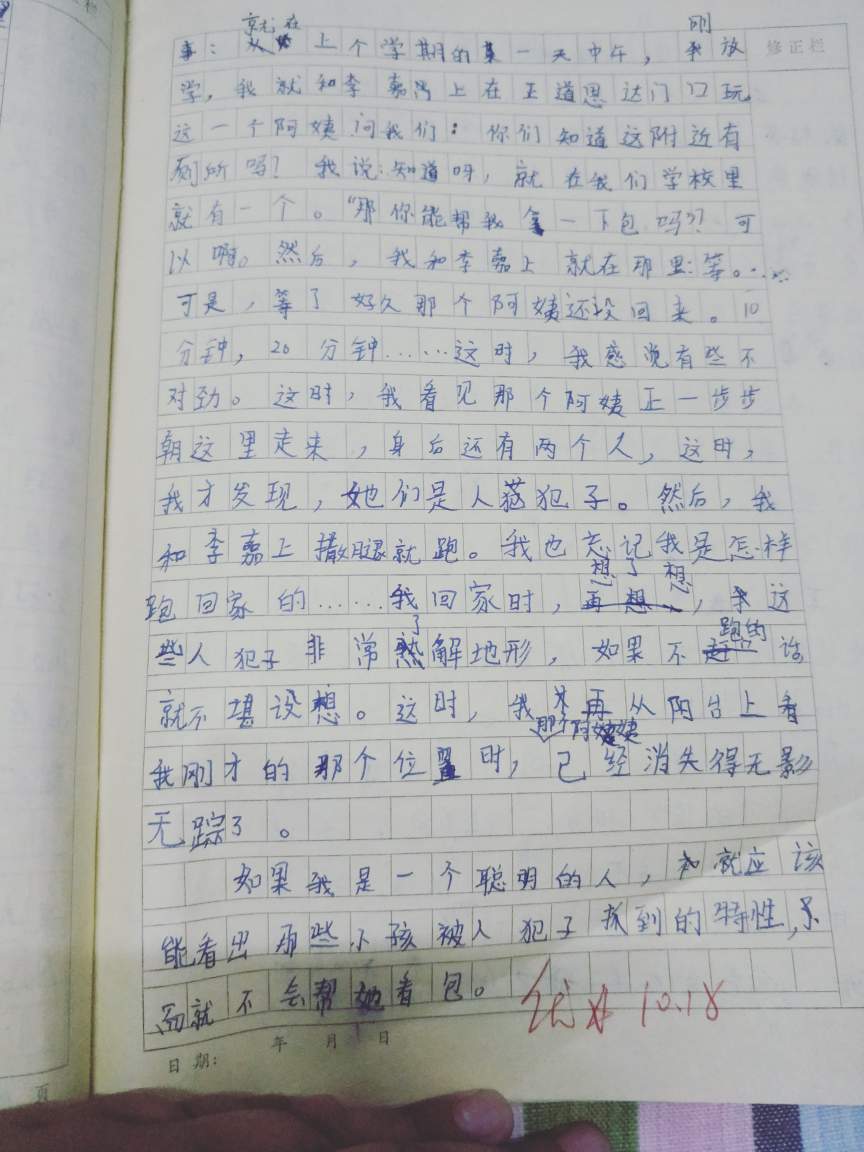 就在 刚
事：上个学期的某一天中午，放 修正栏
学，我就和李嘉上在正道思达门口玩
这一个阿姨问我们：你们知道这附近有
厕所吗？我说：知道呀，就在我们学校里
就有一个。“那你能帮我拿一下包吗？可
以啊。然后，我和李嘉上就在那里等。……
可是，等了好久那个阿姨还没回来。10
分钟，20分钟……这时，我感觉有些不
对劲。这时，我看见那个阿姨正一步步
朝这里走来，身后还有两个人，这时，
我才发现，她们是人犯子。然后，我
和李嘉上撒腿就跑。我也忘记我是怎样
想了想
跑回家的……我回家时，再想，，这
了 跑的
些人犯子非常解地形，如果不话，
就不堪设想。这时，我再从阳台上看
那个阿姨
我刚才的那个位置时，已经消失得无影
无踪了。
如果我是一个聪明的人，就应该
能看出那些小孩被人犯子抓到的特性，
就不会帮她看包。
优 10.18
日期： 年 月 日
页